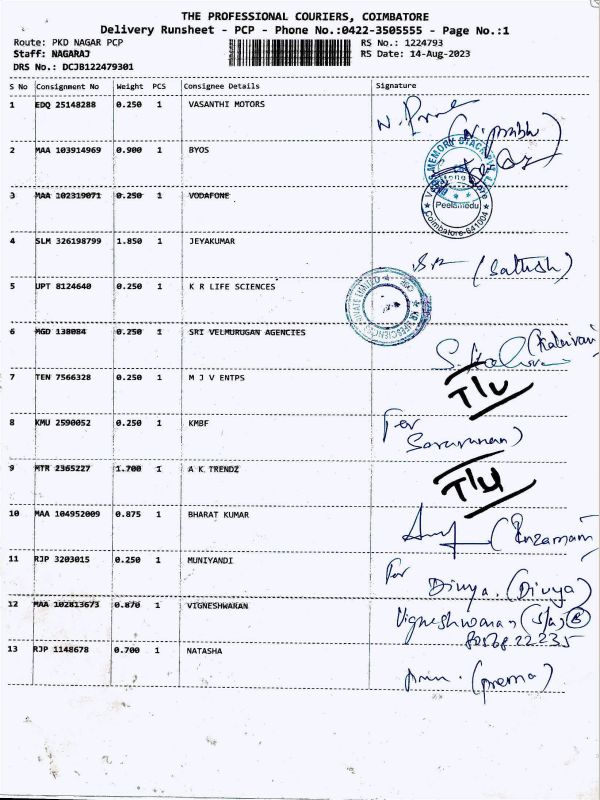 THE PROFESSIONAL COURIERS, COIMBATORE
Delivery Runsheet - PCP - Phone No.:0422-3505555 - Page No.:1
Route: PKD NAGAR PCP RS No.: 1224793
Staff: NAGARAJ RS Date: 14-Aug-2023
DRS No.: DCJB122479301
S No Consignment No Weight PCS Consignee Details Signature
1 EDQ 25148288 0.250 1 VASANTHI MOTORS
2 MAA 103914969 0.900 1 BYOS
3 MAA 102319071 0.250 1 VODAFONE
Peelamedu
Coimbatore-641004
4 SLM 326198799 1.850 1 JEYAKUMAR (Sathish)
5 UPT 8124640 0.250 1 K R LIFE SCIENCES
6 MGD 138084 0.250 1 SRI VELMURUGAN AGENCIES
7 TEN 7566328 0.250 1 M J V ENTPS
8 KMU 2590052 0.250 1 KMBF
For
9 MTR 2365227 1.700 1 A K TRENDZ
10 MAA 104952009 0.875 1 BHARAT KUMAR
11 RJP 3203015 0.250 1 MUNIYANDI
For Divya. (Divya)
12 MAA 102813673 0.870 1 VIGNESHWARAN
Vigneshwaran
13 RJP 1148678 0.700 1 NATASHA
(prema)